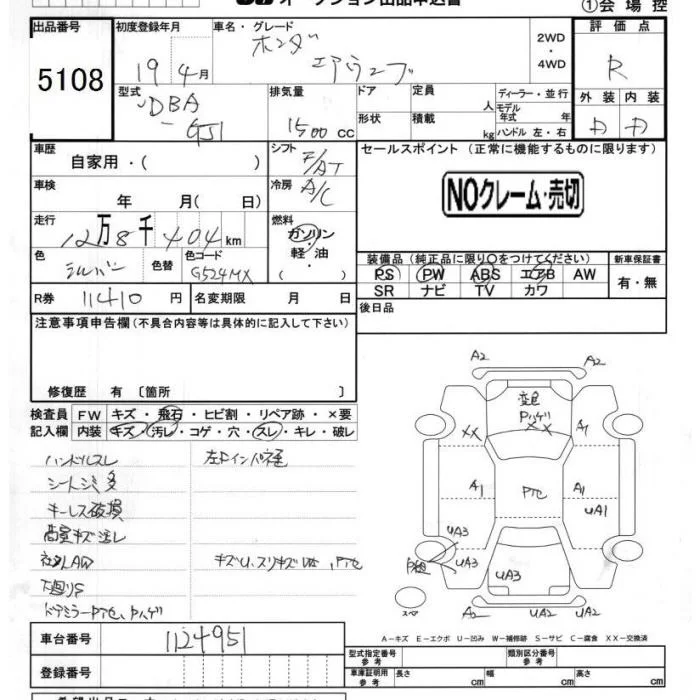 オークション出品申込書
①会場控
出品番号
5108
初度登録年月
19年4月
車名・グレード
ホンダ
エアウェーブ
2WD
・
4WD
評価点
R
型式
DBA
-GJ1
排気量
1500cc
ドア
形状
定員 人
積載 kg
ディーラー・並行
モデル年式 年
ハンドル 左・右
外装 内装
D D
車歴
自家用・( )
シフト
F/AT
セールスポイント (正常に機能するものに限ります)
NOクレーム・売切
車検
年 月( 日)
冷房
A/C
走行
12万8千404km
燃料
ガソリン
・
軽・油
( )
色
シルバー
色替
色コード
G524MX
装備品 (純正品に限り○をつけてください)
新車保証書
PS PW ABS エアB AW
SR ナビ TV カワ
有・無
R券 11410円
名変期限 月 日
後日品
注意事項申告欄(不具合内容等は具体的に記入して下さい)
修復歴 有〔箇所 〕
検査員記入欄
FW キズ・飛石・ヒビ割・リペア跡・×要
内装 キズ・汚レ・コゲ・穴・スレ・キレ・破レ
ハンドルスレ
シートシミ多
キーレス破損
下廻りS
A2
A2
XX
XX
A1
A1
PTC
A1
UA1
UA3
UA3
UA3
スペア
A2
UA2
UA2
A−キズ E−エクボ U−凹み W−補修跡 S−サビ C−腐食 XX−交換済
車台番号
1124951
登録番号
型式指定番号
参考
類別区分番号
参考
車庫証明用
参考
長さ cm
幅 cm
高さ cm